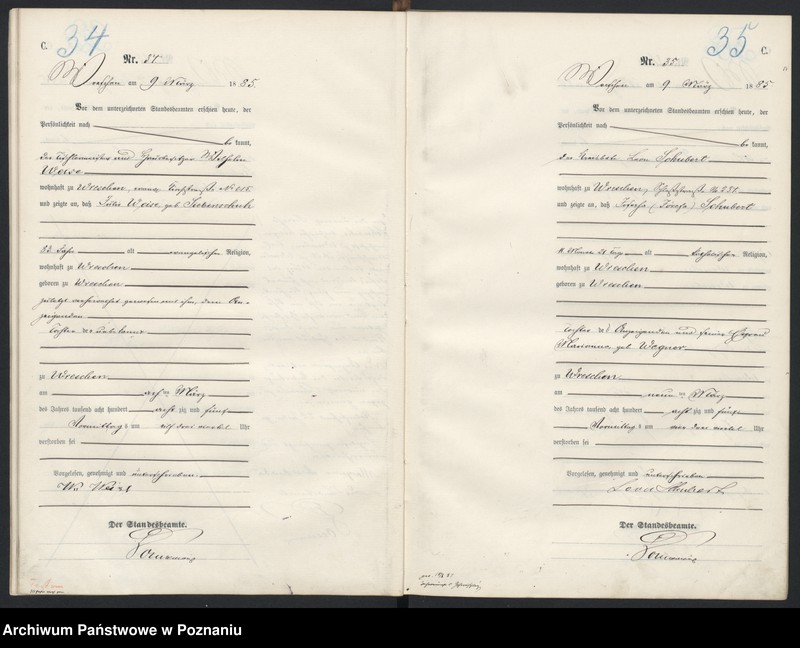 C.
34
Nr. 34
Wreschen am 9 März 1885.
Vor dem unterzeichneten Standesbeamten erschien heute, der
Persönlichkeit nach
be kannt,
der und Hausbesitzer Wilhelm
Weise
wohnhaft zu Wreschen, No
und zeigte an, daß Weise geb
52 Jahr alt evangelischer Religion,
wohnhaft zu Wreschen
geboren zu Wreschen
zuletzt verheirathet gewesen mit ihm, dem An-
zeigenden
Tochter der unbekannt
zu Wreschen
am acht ten März
des Jahres tausend acht hundert acht zig und fünf
Vormittag s um elf drei viertel Uhr
verstorben sei
Vorgelesen, genehmigt und unterschrieben
Der Standesbeamte.
35
C.
Nr. 35
Wreschen am 9 März 1885
Vor dem unterzeichneten Standesbeamten erschien heute, der
Persönlichkeit nach
be kannt,
der Leon Schubert
wohnhaft zu Wreschen, No 251
und zeigte an, daß Josepha (Józefa) Schubert
11 Monate 21 Tage alt katholischer Religion,
wohnhaft zu Wreschen
geboren zu Wreschen
Tochter des Anzeigenden und seiner Ehefrau
Marianna geb Wegner
zu Wreschen
am neun ten März
des Jahres tausend acht hundert acht zig und fünf
Vormittag s um vier drei viertel Uhr
verstorben sei
Vorgelesen, genehmigt und unterschrieben
Leon Schubert
Der Standesbeamte.
Archiwum Państwowe w Poznaniu